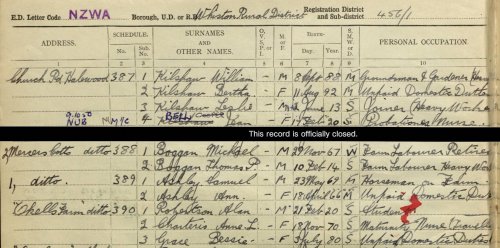 E.D. Letter Code NZWA Borough, U.D. or R.D. Whiston Rural District Registration District and Sub-district 456/1
ADDRESS. SCHEDULE. SURNAMES AND OTHER NAMES. O. V. S. P. or I. M. or F. BIRTH— S. M. W. or D. PERSONAL OCCUPATION.
No. Sub. No. Day. Year.
1 2 3 4 5 6 7 8 9 10
Church Rd Halewood 387 1 Kilshaw William - M 8 Sept 88 M Gardener Heavy
2 Kilshaw Bertha - F 11 Aug 92 M Unpaid Domestic Duties
3 Kilshaw Leslie - M June 13 S Joiner Heavy Worker
9.10.50 NUB M/C 4 BELL Jean - F Feb 20 S Probationer Nurse
This record is officially closed.
2 Mercers Cotts ditto 388 1 Boggan Michael - M 29 Nov 67 W Farm Labourer Retired
2 Boggan Thomas P. - M 10 Feb 14 S Farm Labourer Heavy Work
1, ditto. 389 1 Ashley Samuel - M 23 May 69 M Horseman on Farm
2 Ashley Ann - F 18 April 66 M Unpaid Domestic Duties
Chells Farm ditto 390 1 Robertson Alan - M 21 Feb 20 S Student
2 Charleris Anne L. - F 18 Nov 70 S Maternity Nurse
3 Grace Bessie - F July 80 S Unpaid Domestic Duties